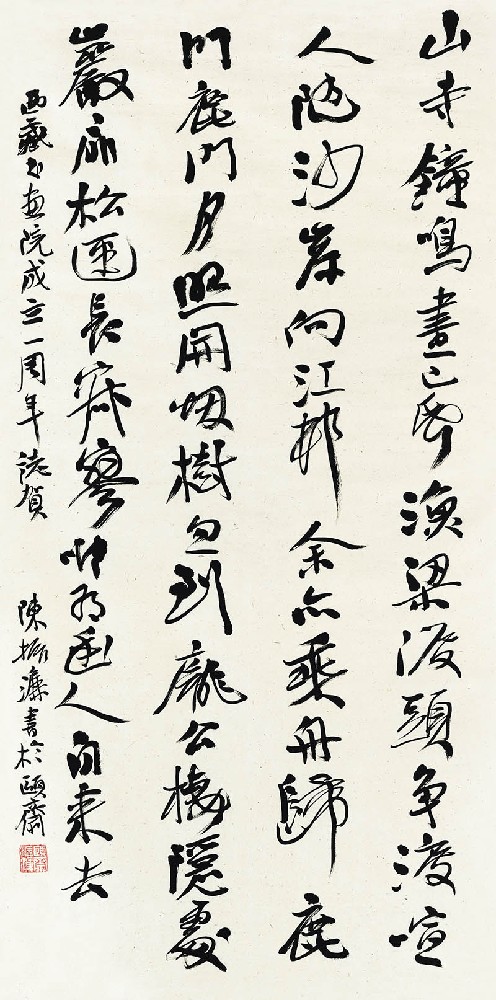 山寺鐘鳴晝已昏漁梁渡頭争渡喧
人随沙岸向江邨余亦乘舟歸鹿
門鹿門月照開烟樹忽到龐公棲隱處
巖扉松逕長寂寥唯有幽人自来去
西藏书画院成立一周年誌賀 陳振濂書於頤齋